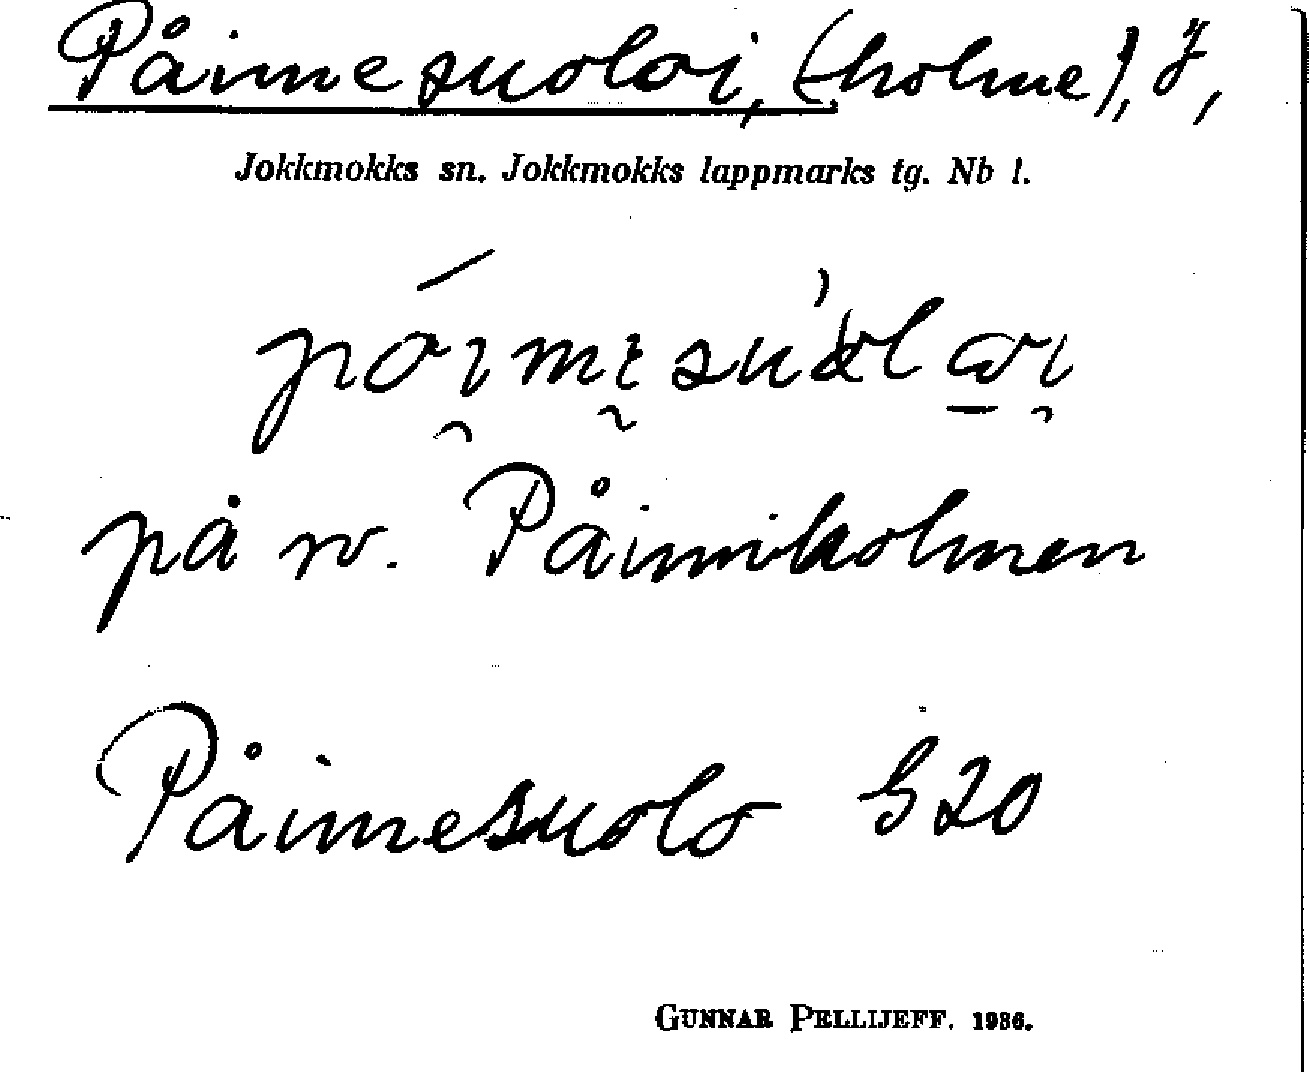 Påimesuoloj, (-holme), J,
Jokkmokks sn. Jokkmokks lappmarks tg. Nb l.
på sv. Påimiholmen
Påimesuolo G20
GUNNAR PELLIJEFF. 1936.